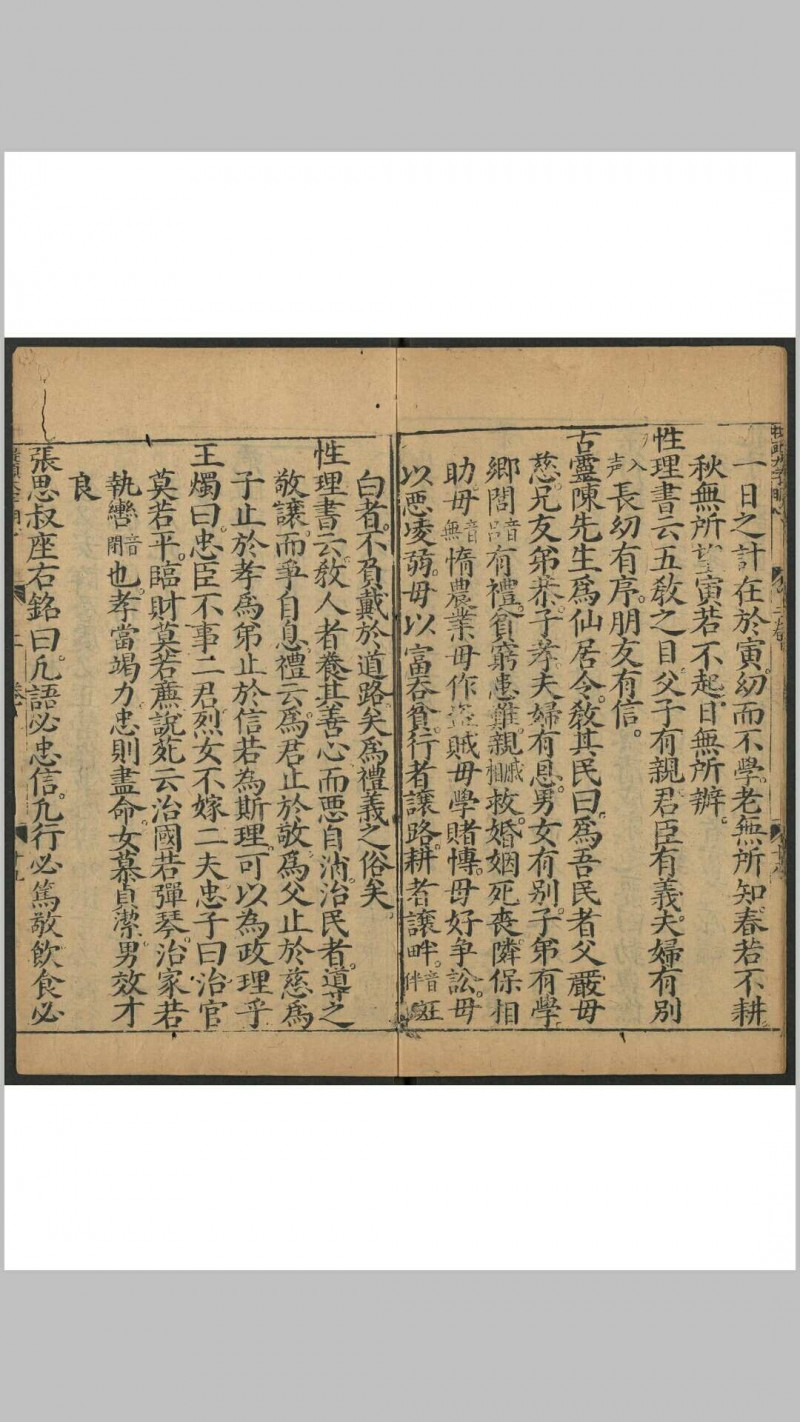 一日之計在於寅。幼而不學。老無所知春若不耕
秋無所望寅若不起。日無所辦。
性理書云五教之目父子有親君臣有義。夫婦有別
入声長幼有序。朋友有信。
古靈陳先生為仙居令。教其民曰。為吾民者父嚴毋
慈。兄友弟恭。子孝夫婦有恩。男女有別。子弟有學
鄉閭音呂有禮。貧窮患難。親戚相救。婚姻死喪隣保相
助毋音無惰農業毋作盗賊毋學賭博。毋好爭訟。毋
以悪凌弱。毋以富吞貧。行者讓路。耕者讓畔。音伴斑
白者。不負戴於道路矣為禮義之俗矣。
性理書云。教人者養其善心而悪自消。治民者。導之
敬讓。而爭自息。禮云為君止於敬為父止於慈為
子止於孝為弟止於信若為斯理。可以為政理乎
王燭曰。忠臣不事二君烈女不嫁二夫忠子曰治官
莫若平。臨財莫若廉說苑云治國若彈琴。治家若
執轡音閉也。孝當竭力忠則盡命。女慕貞潔。男效才
良
張思叔座右銘曰。凡語必忠信。凡行必篤敬飲食必